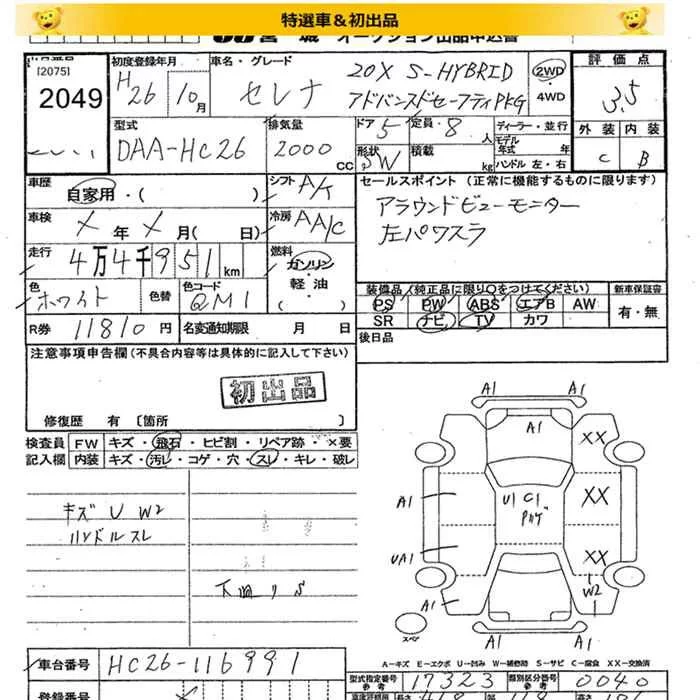 特選車＆初出品
宮城 オークション出品申込書
出品番号
[2075]
2049
初度登録年月
H26 10月
車名・グレード
セレナ
20X S-HYBRID
アドバンスドセーフティPKG
2WD・4WD
評価点
3.5
外装 内装
C B
型式
DAA-HC26
排気量
2000 CC
ドア 5
定員・8人
形状 SW
積載 kg
ディーラー・並行
モデル年式 年
ハンドル 左・右
車歴
自家用・( )
シフト A/
車検
X年X月( 日)
冷房 AA/C
走行
4万4千951km
燃料
ガソリン・軽・油
( )
色
ホワイト
色替
色コード
QM1
R券 11810円
名変通知期限 月 日
セールスポイント（正常に機能するものに限ります）
アラウンドビューモニター
左パワスラ
装備品（純正品に限り○をつけてください）
PS PW ABS エアB AW
SR ナビ TV カワ
新車保証書
有・無
後日品
注意事項申告欄(不具合内容等は具体的に記入して下さい)
初出品
修復歴 有〔箇所 〕
検査員記入欄
FW キズ・飛石・ヒビ割・リペア跡・×要
内装 キズ・汚レ・コゲ・穴・スレ・キレ・破レ
キズ U W2
ハンドルスレ
下廻りS
A1 A1
A1
XX
A1
U1 C1
XX
UA1
XX
W2
A1
スペア
A1
A－キズ E－エクボ U－凹み W－補修跡 S－サビ C－腐食 XX－交換済
車台番号
HC26-116991
型式指定番号 参考 17323
類別区分番号 参考 0040
登録番号
長さ